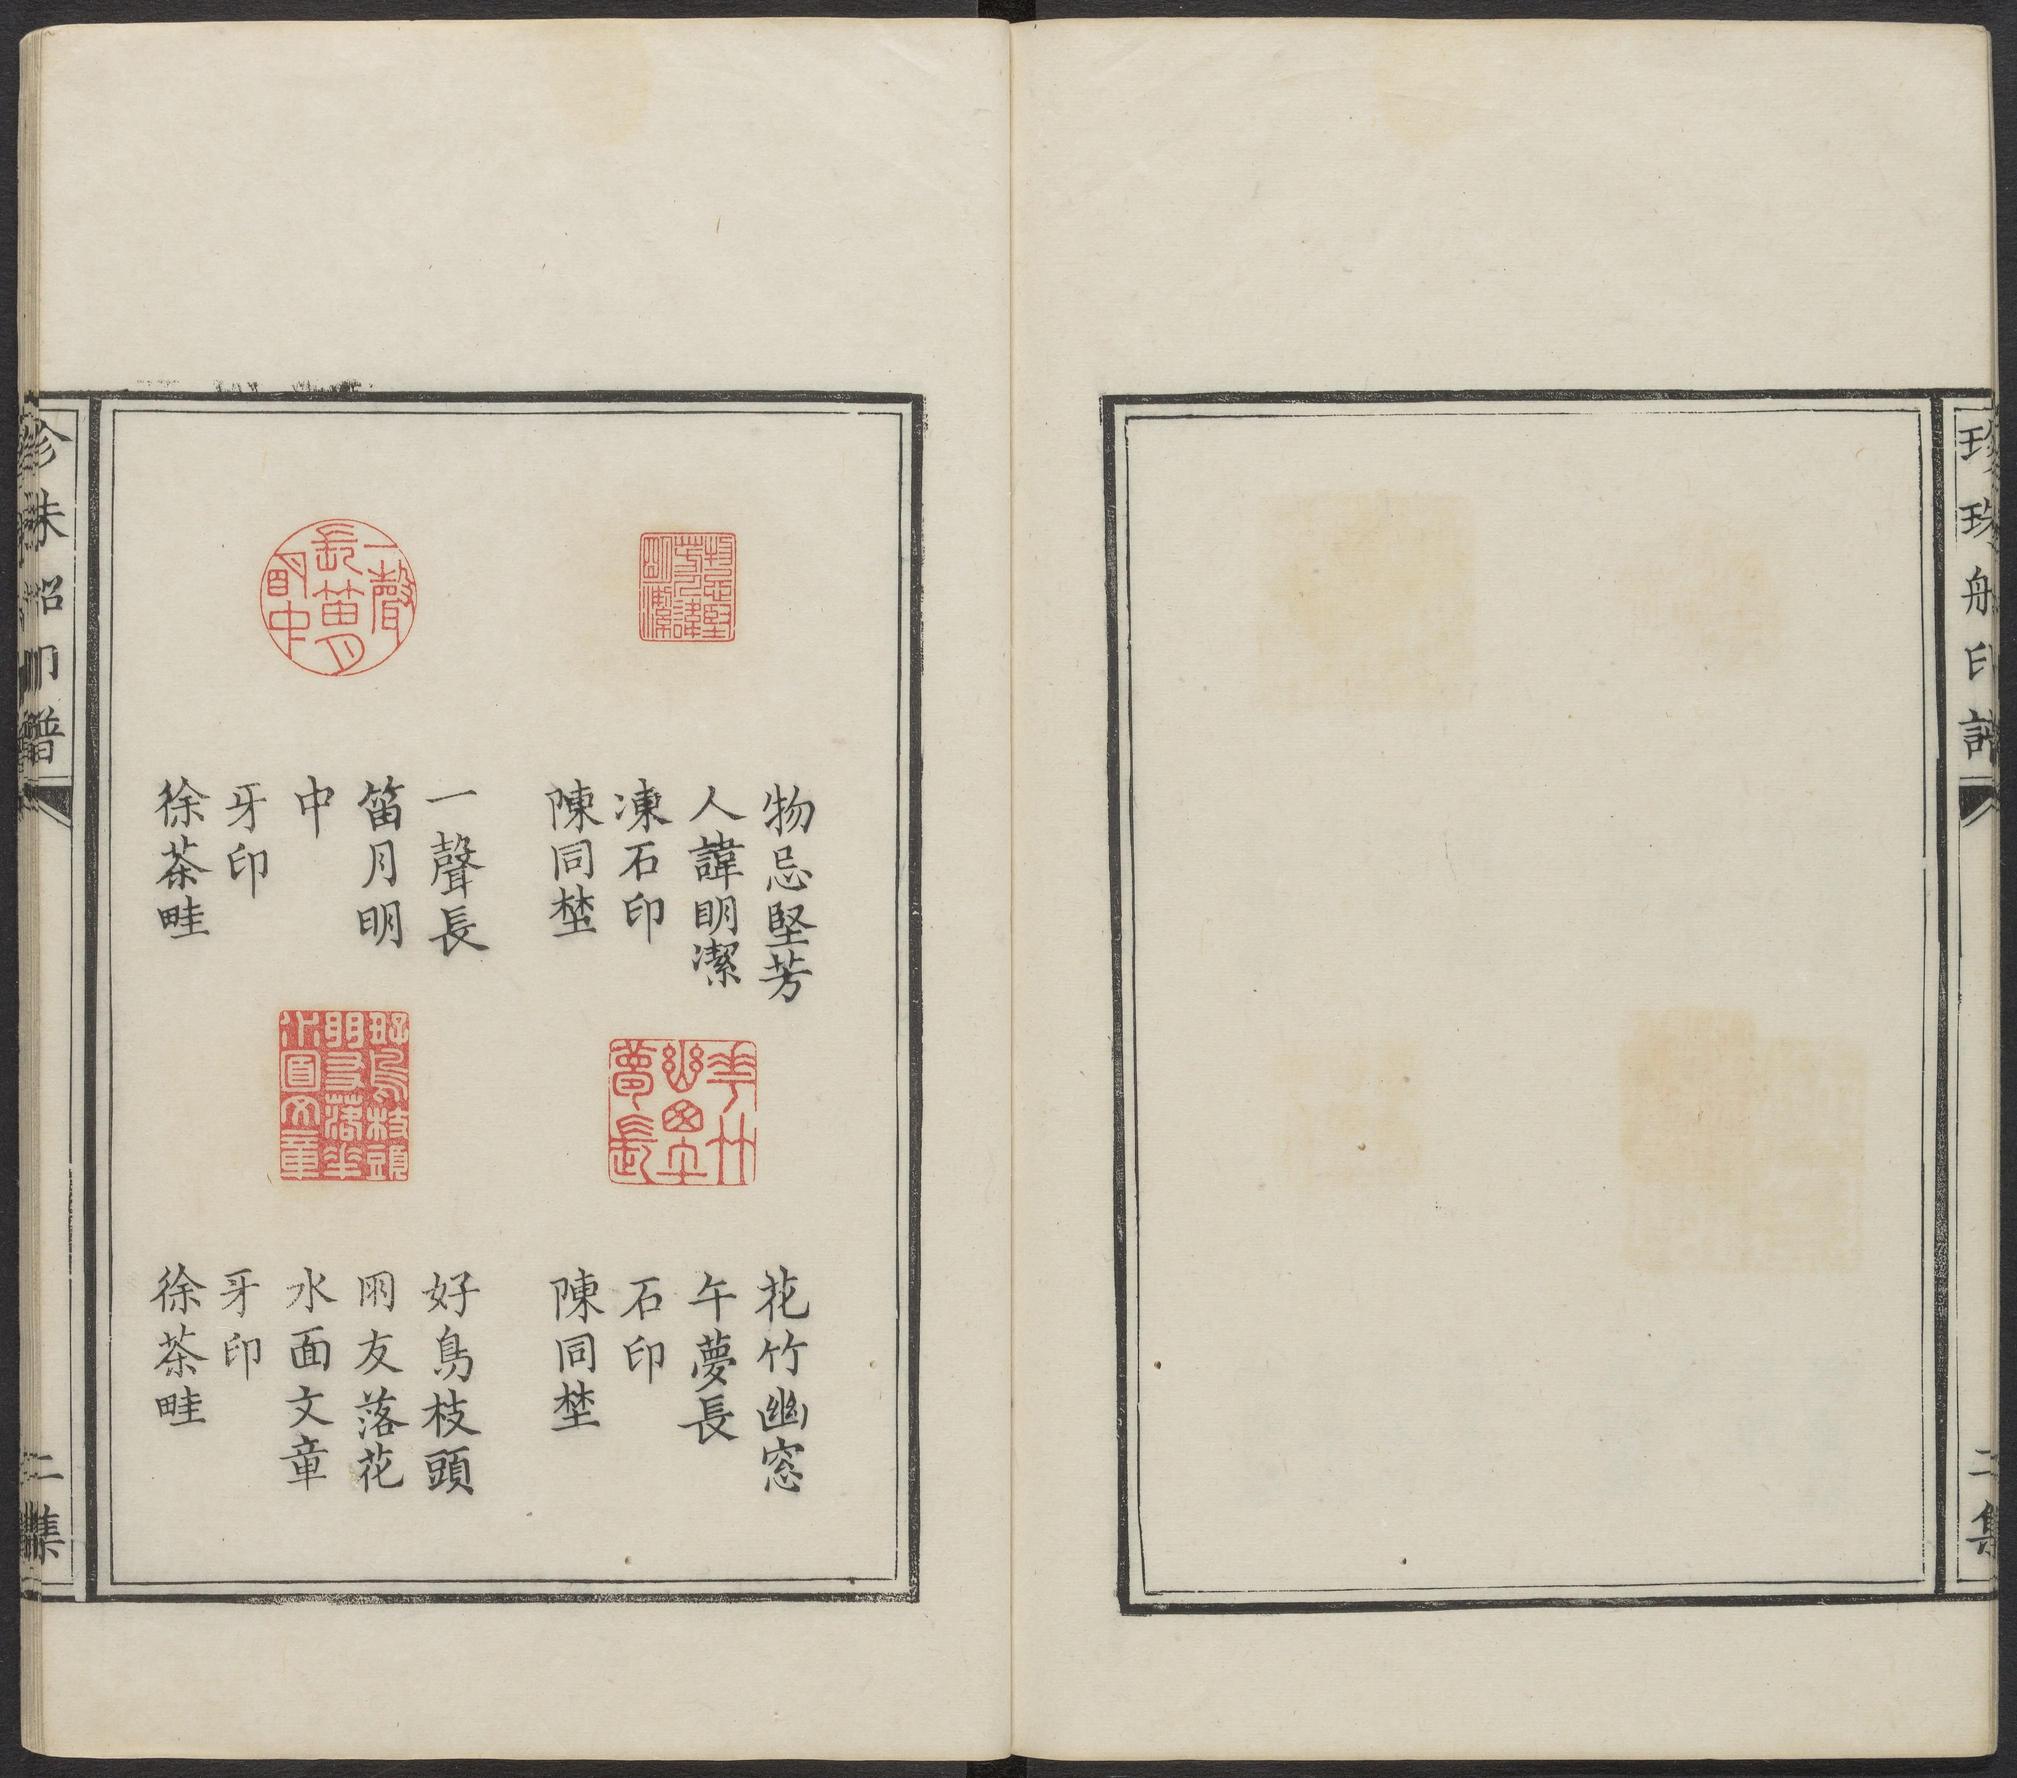 珍珠船印譜
二集
物忌堅芳
人諱明潔
凍石印
陳同埜
花竹幽窓
午夢長
石印
陳同埜
一聲長
笛月明
中
牙印
徐茶畦
好鳥枝頭
朋友落花
水面文章
牙印
徐茶畦
珍珠船印譜
二集